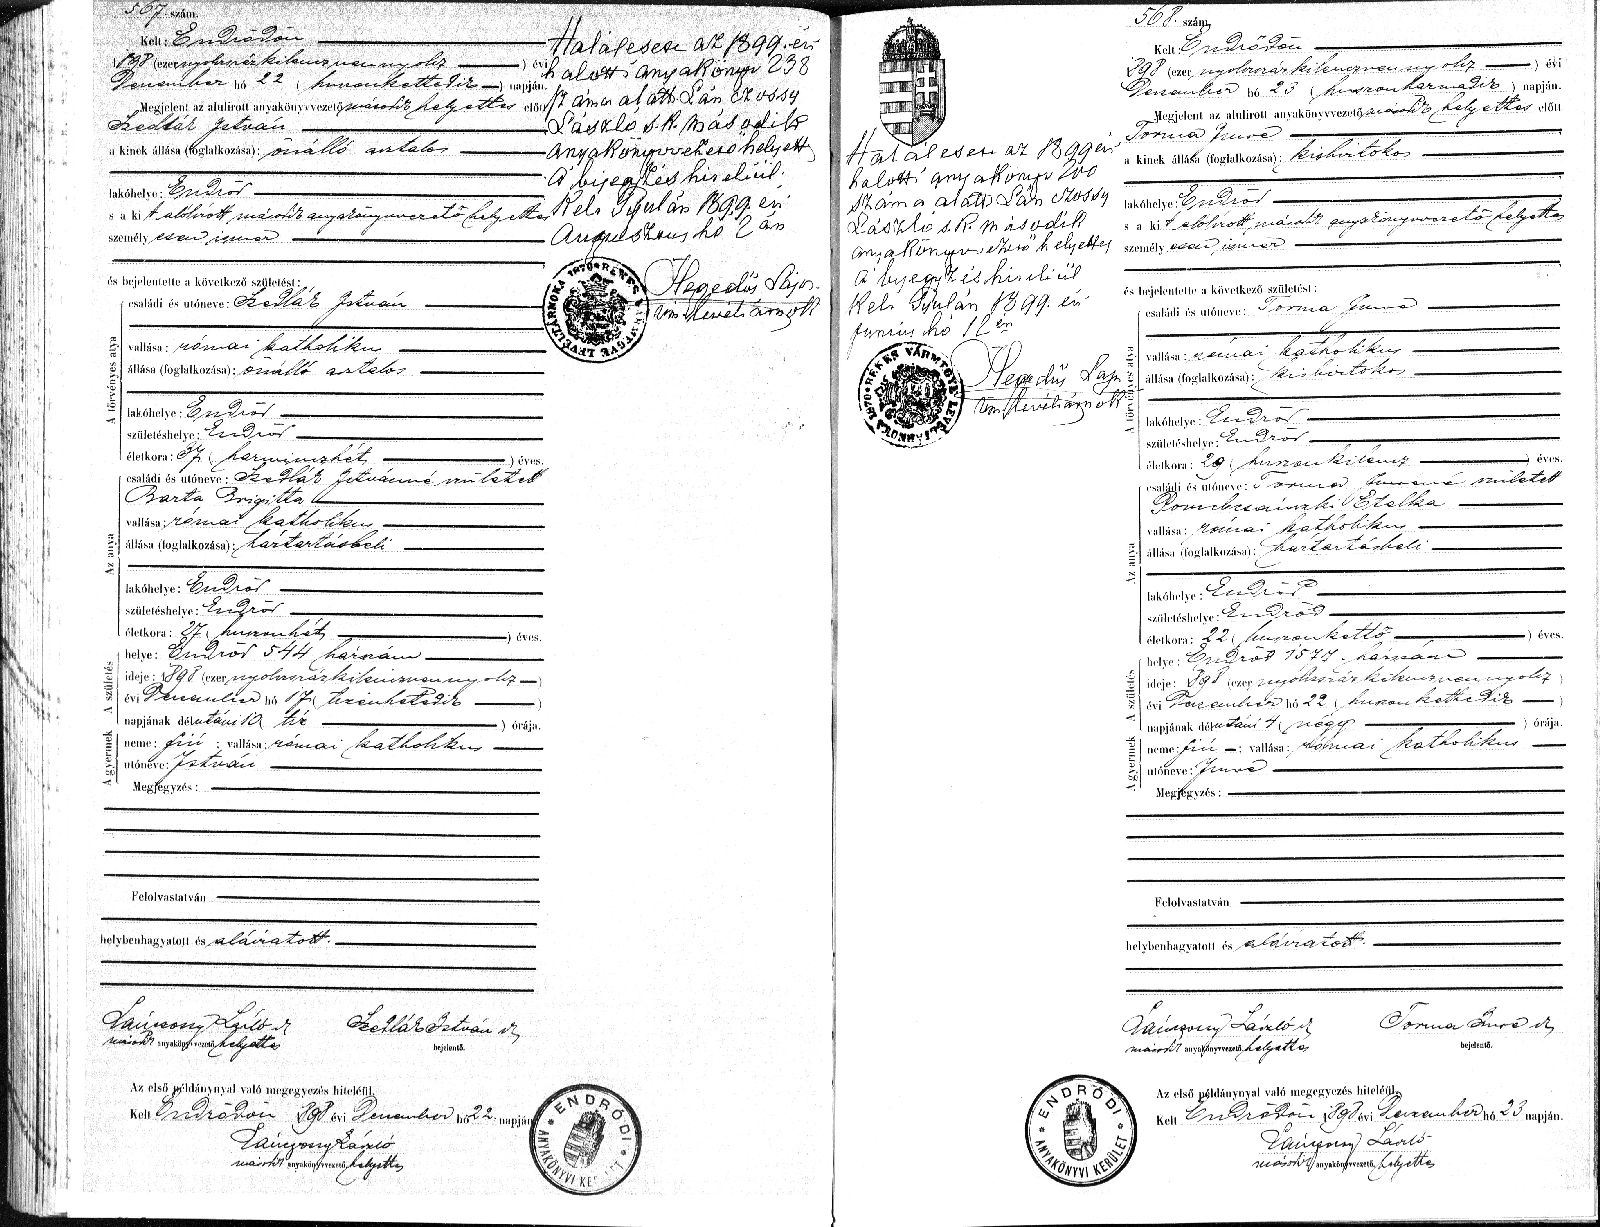 567. szám.
Kelt: Endrődön
1898 (ezernyolcszázkilenczvennyolcz) évi
December hó 22 (huszonkettedik) napján.
Megjelent az alulirott anyakönyvvezető másodk helyettes előtt
Szedlák István
a kinek állása (foglalkozása): önálló
lakóhelye: Endrőd
s a kit alólírott másodk anyakönyvvezető helyettes
személyesen ismer
és bejelentette a következő születést:
A törvényes atya
családi és utóneve: Szedlák István
vallása: római katholikus
állása (foglalkozása): önálló
lakóhelye: Endrőd
születéshelye: Endrőd
életkora: 37 (harminczhét) éves.
Az anya
családi és utóneve: Szedlák Istvánné született
Barta Brigitta
vallása: római katholikus
állása (foglalkozása): háztartásbeli
lakóhelye: Endrőd
születéshelye: Endrőd
életkora: 27 (huszonhét) éves.
A születés
helye: Endrőd 544 házszám
ideje: 1898 (ezernyolcszázkilenczvennyolcz)
évi December hó 17 (tizenhetedik)
napjának délutáni 10 tíz órája.
A gyermek
neme: fiú; vallása: római katholikus
utóneve: István
Megjegyzés:
Felolvastatván
helybenhagyatott és aláiratott.
László Szedlák István
másodk anyakönyvvezető helyettes bejelentő.
Az első példánynyal való megegyezés hiteléül.
Kelt Endrődön 1898 évi December hó 22. napján
László
másodk anyakönyvvezető helyettes
ENDRŐDI ANYAKÖNYVI KERÜLET
Halálesese az 1899. évi
halotti anyakönyv 238
száma alatt
László s.k. második
anyakönyvvezető helyett
A bejegyzés hiteléül.
Kelt Gyulán 1899. évi
Augusztus hó 2 án
Hegedüs Lajos
vm. levéltárnok
BÉKÉS VÁRMEGYE LEVÉLTÁRNOKA 1870
Halálesese az 1899 évi
halotti anyakönyv 200
száma alatt
László s.k. második
anyakönyvvezető helyettes
A bejegyzés hiteléül
Kelt Gyulán 1899. évi
junius hó
Hegedüs Lajos
vm. levéltárnok
BÉKÉS VÁRMEGYE LEVÉLTÁRNOKA 1870
568. szám.
Kelt: Endrődön
1898 (ezernyolcszázkilenczvennyolcz) évi
December hó 23 (huszonharmadik) napján.
Megjelent az alulirott anyakönyvvezető másodk helyettes előtt
Torma Imre
a kinek állása (foglalkozása): kisbirtokos
lakóhelye: Endrőd
s a kit alólírott másodk anyakönyvvezető helyettes
személyesen ismer
és bejelentette a következő születést:
A törvényes atya
családi és utóneve: Torma Imre
vallása: római katholikus
állása (foglalkozása): kisbirtokos
lakóhelye: Endrőd
születéshelye: Endrőd
életkora: 29 (huszonkilencz) éves.
Az anya
családi és utóneve: Torma Imréné született
Etelka
vallása: római katholikus
állása (foglalkozása): háztartásbeli
lakóhelye: Endrőd
születéshelye: Endrőd
életkora: 22 (huszonkettő) éves.
A születés
helye: Endrőd házszám
ideje: 1898 (ezernyolcszázkilenczvennyolcz)
évi December hó 22 (huszonkettedik)
napjának délutáni 4 (négy) órája.
A gyermek
neme: fiú; vallása: római katholikus
utóneve: Imre
Megjegyzés:
Felolvastatván
helybenhagyatott és aláiratott.
László Torma Imre
másodk anyakönyvvezető helyettes bejelentő.
Az első példánynyal való megegyezés hiteléül.
Kelt Endrődön 1898 évi December hó 23 napján.
László
másodk anyakönyvvezető helyettes
ENDRŐDI ANYAKÖNYVI KERÜLET